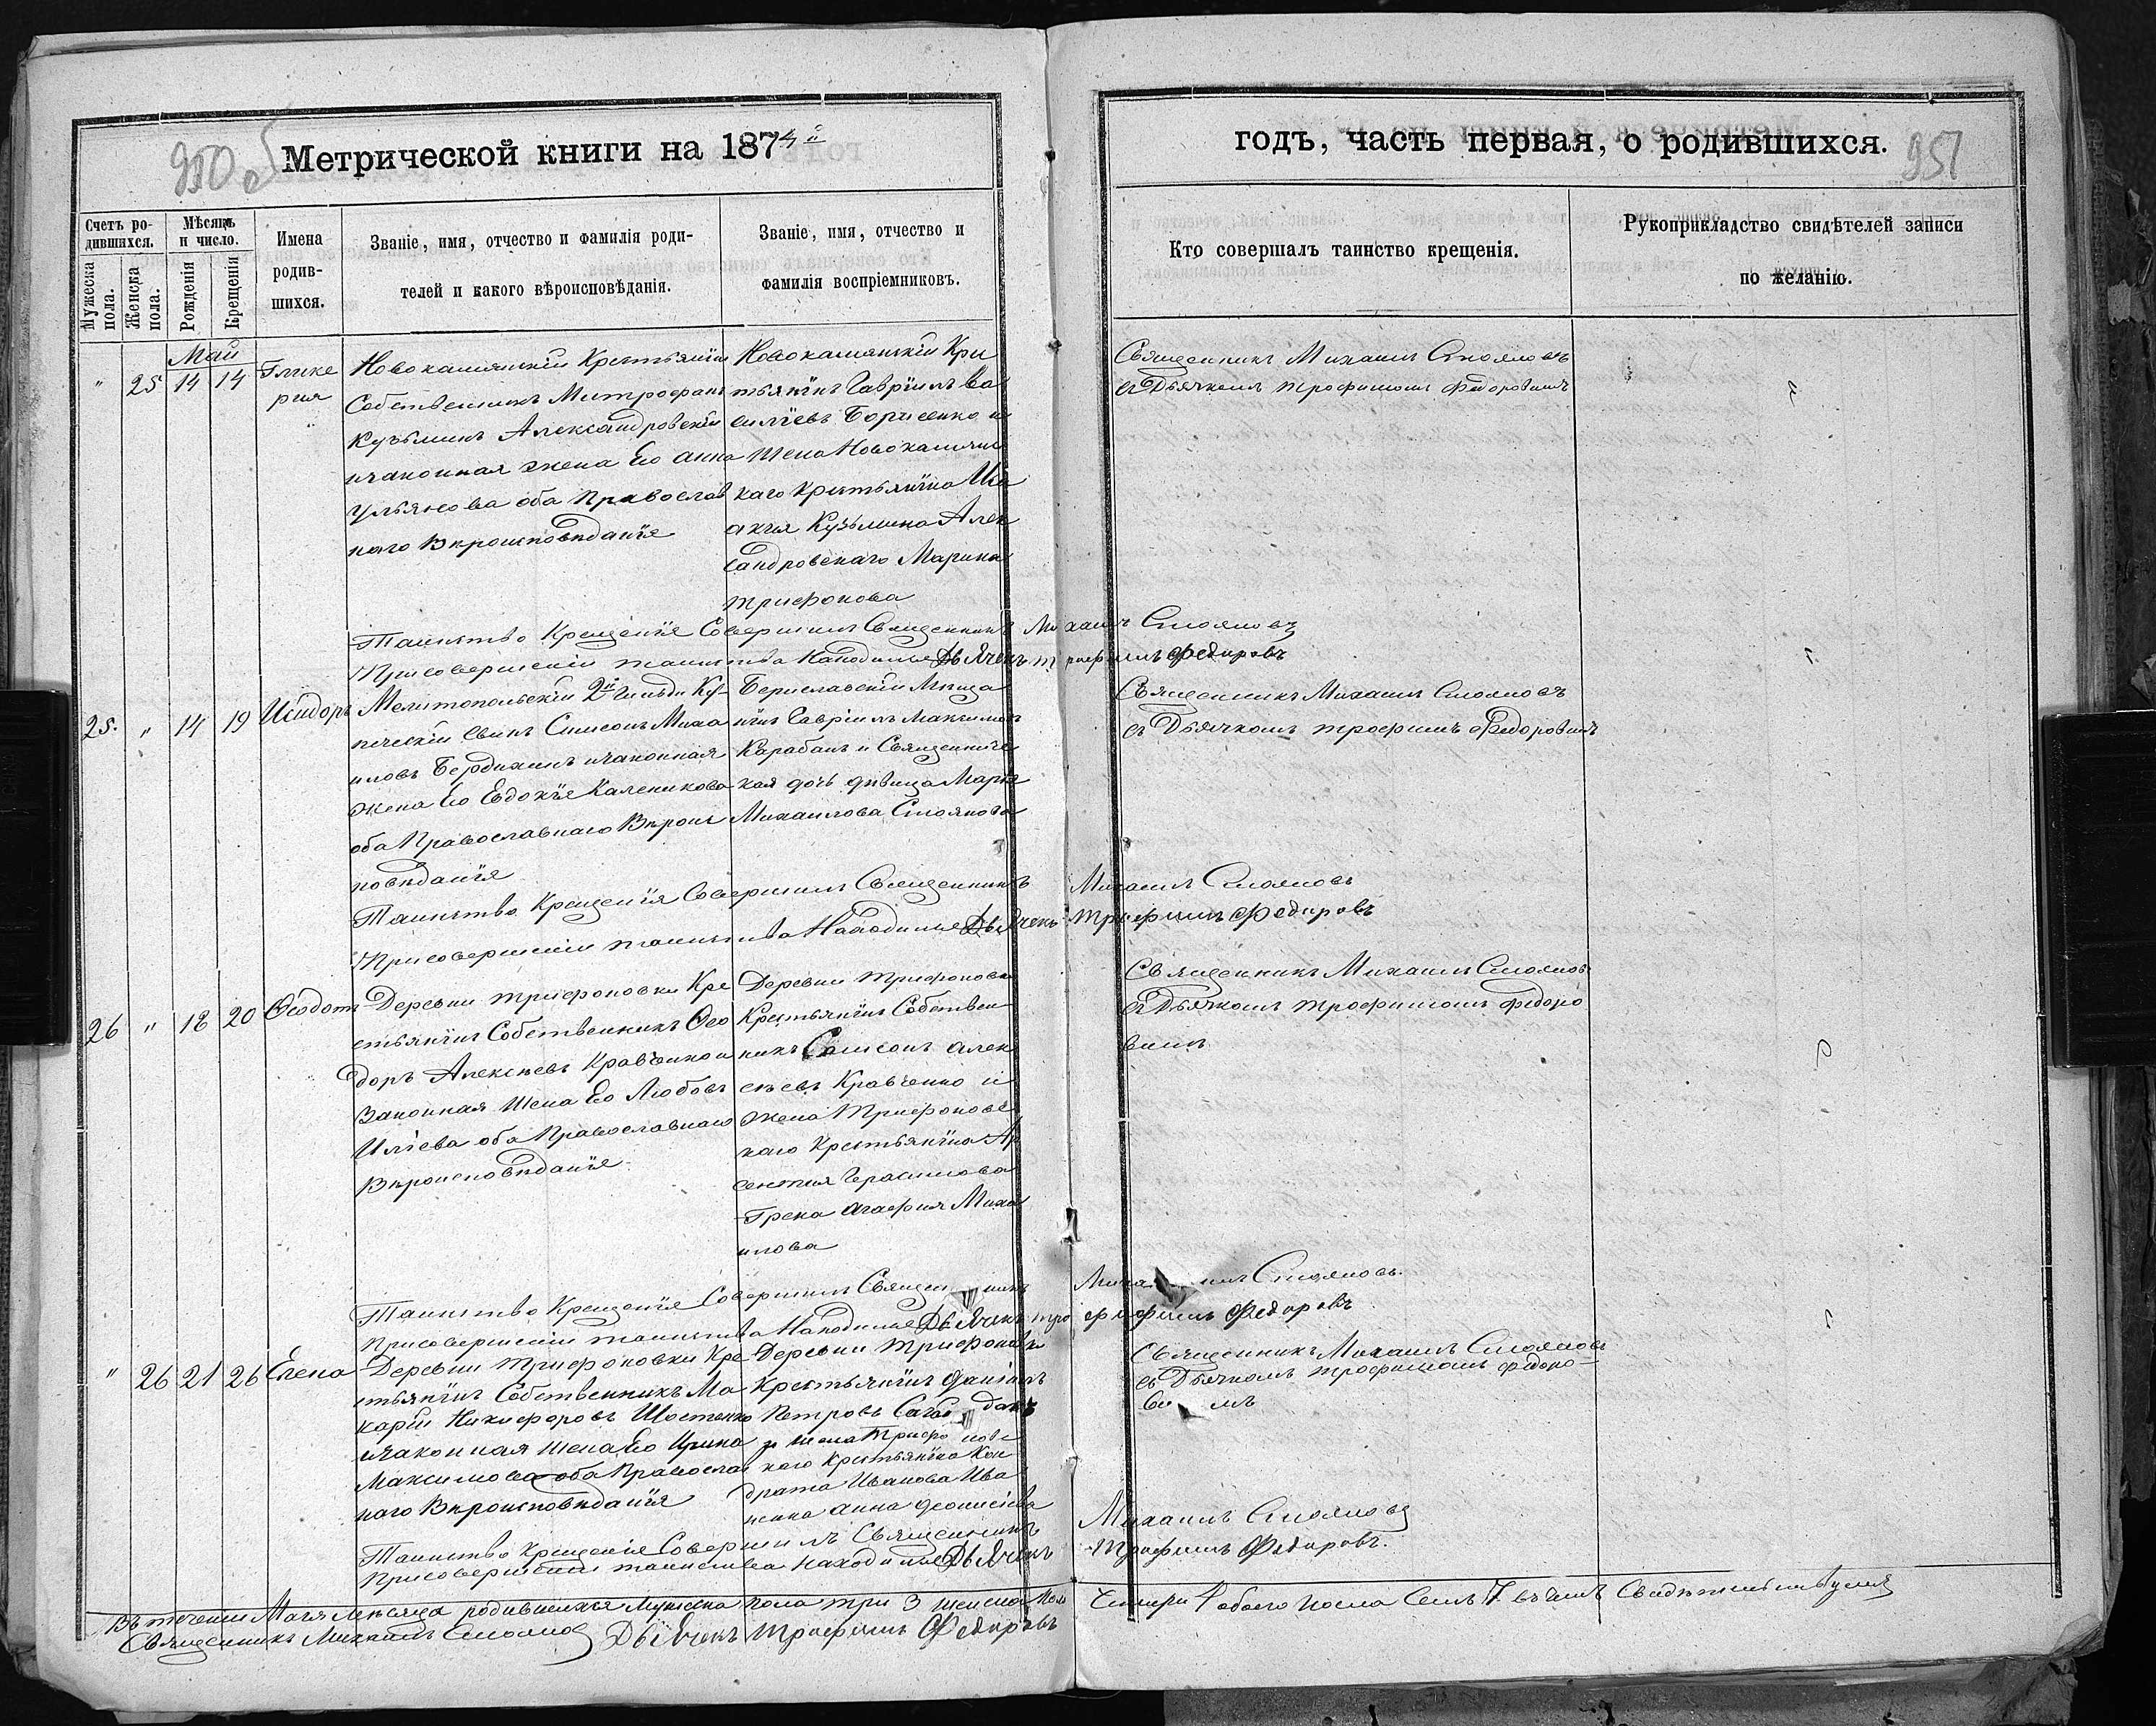 950
Метрической книги на 1874й
годъ, часть первая, о родившихся.
951
Счетъ ро-
дившихся.
Мужеска
пола.
Женска
пола.
Мѣсяцъ
и число.
Рожденія
Крещенія
Имена
родив-
шихся.
Званіе, имя, отчество и фамилія роди-
телей и какого вѣроисповѣданія.
Званіе, имя, отчество и
фамилія воспріемниковъ.
Кто совершалъ таинство крещенія.
Рукоприкладство свидѣтелей записи
по желанію.
Май
" 25 14 14 Глике
рия
Новокаменскій Крестьянинъ
Собственникъ Митрофанъ
Кузьминъ Александровскій
изаконная жена Его Анна
Ульянова оба Православ
наго Вѣроисповѣданія
Новокаменскій Кре
тьянинъ Гавріилъ Ва
силіевъ Борисенко и
жена Новокаменс
каго Крестьянина Иса
акія Кузьмина Алек
сандровскаго Марина
Трифонова
Священникъ Михаилъ Стояновъ
съ Дьячкомъ Трофимомъ Федоровымъ
Таинство Крещенія Совершилъ Священникъ Михаилъ Стояновъ
Присовершеніи таинства Находился Дьячекъ Трофимъ Федоровъ
25. " 14 19 Исидоръ
Мелитопольскій 2й Гильди Ку-
печескій Сынъ Симеонъ Миха
иловъ изаконная
жена Его Евдокія Каленикова
оба Православнаго Вѣроис
повѣданія
Бериславскій Мѣща
нинъ Гавріилъ Максимовъ
Карабанъ и Священничес
кая дочь дѣвица Марія
Михаилова Стоянова
Священникъ Михаилъ Стояновъ
съ Дьячкомъ Трофимъ Федоровымъ
Таинство Крещенія Совершилъ Священникъ Михаилъ Стояновъ
Присовершеніи таинства Находился Дьячекъ Трофимъ Федоровъ
26 " 18 20 Ѳеодотъ
Деревни Трифоновки Кре
стьянинъ Собственникъ Ѳео
доръ Алексѣевъ Кравченко и
Законная жена Его Любовь
Иліева оба Православнаго
Вѣроисповѣданія
Деревни Трифоновки
Крестьянинъ Собствен
никъ Самсонъ Алек
сѣевъ Кравченко и
жена Трифоновс
каго Крестьянина Ар
сентия Герасимова
Грека Агафия Миха
илова
Священникъ Михаилъ Стояновъ
съ Дьячкомъ Трофимомъ Федоро
вымъ
Таинство Крещенія Совершилъ Священникъ Михаилъ Стояновъ.
Присовершеніи таинства Находился Дьячекъ Трофимъ Федоровъ
" 26 21 26 Елена
Деревни Трифоновки Кре
стьянинъ Собственникъ Ма
карій Никифоровъ Шостенко
изаконная жена Его Ирина
Максимова оба Православ
наго Вѣроисповѣданія
Деревни Трифоновки
Крестьянинъ Даніилъ
Петровъ
и жена Трифоновс
каго Крестьянина Кон
драта Иванова Ива
ненка Анна Деонисіева
Священникъ Михаилъ Стояновъ
съ Дьячкомъ Трофимомъ Федоро-
вымъ
Таинство Крещенія Совершилъ Священникъ Михаилъ Стояновъ
Присовершеніи таинства Находился Дьячекъ Трофимъ Федоровъ.
Въ теченіи Мая Мѣсяца родившихся Мужеска пола три 3 женска пола Четыри 4 обоего пола Семь 7 въ чемъ Свидѣтельствуемъ
Священникъ Михаилъ Стояновъ Дьячекъ Трофимъ Федоровъ